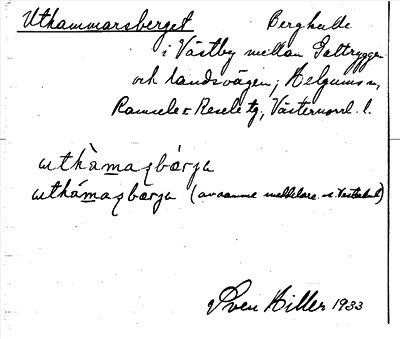 Uthammarsberget Berghulle
i Västby mellan Gattryggen
och landsvägen; Helgums sn,
Ramsele o. Resele tg, Västernorrl. l.
uthàmaʂbærja
uthámaʂbærja (av samme meddelare.
Sven Hiller 1933